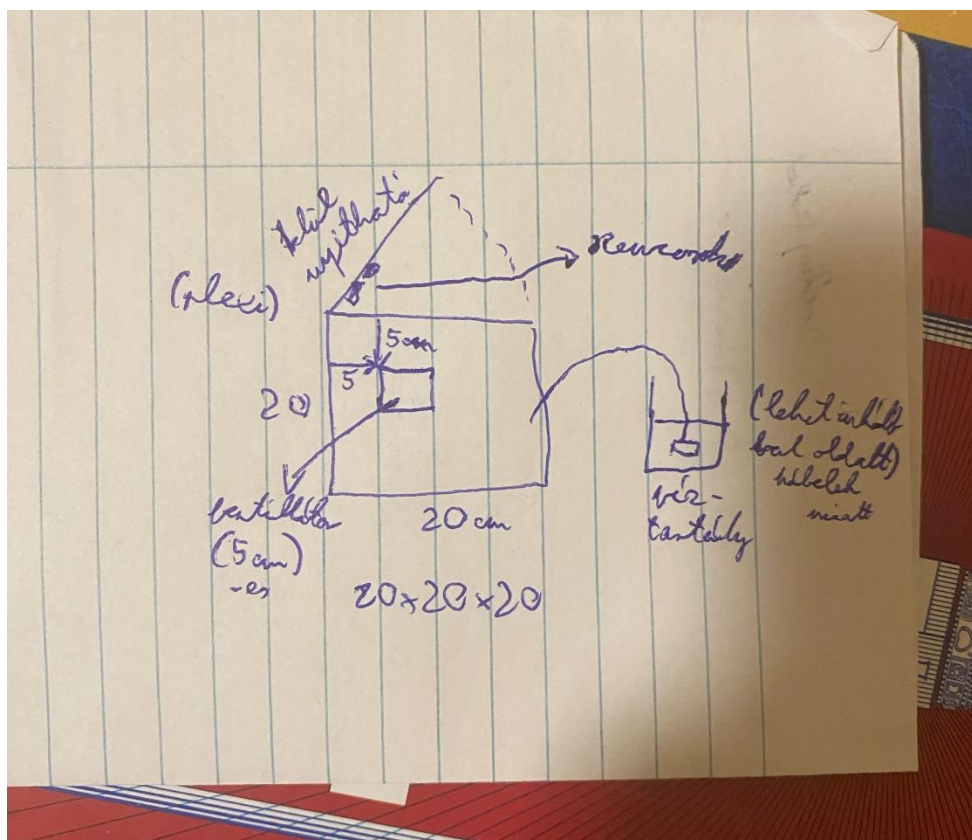 felül
nyitható
(plexi)
5cm
5
20
ventillátor
(5cm)
-es
20cm
20x20x20
víz-
tartály
(lehet inkább
bal oldalt)
kábelek
miatt